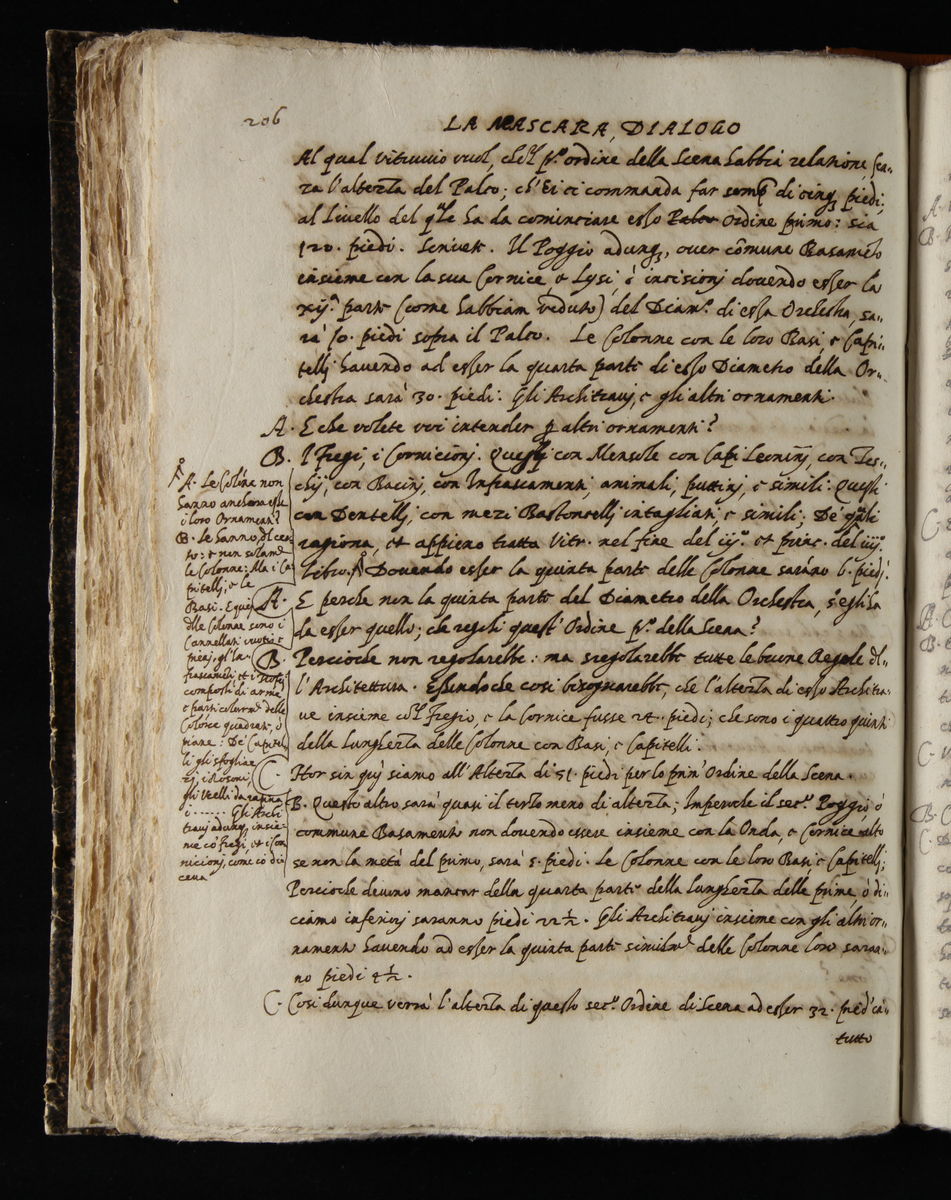 206
LA MASCARA, DIALOGO
Al qual Vitruvio vuol, che'l p.º ordine della Scena habbia relatione, sen-
za l'altezza del Palco; ch'Ei ci commanda far semp di cinq, piedi;
al livello del q.le ha da cominciare esso Palco Ordine primo: sia
120. piedi. Il Poggio adunq, over cõmune Basamẽto
insieme con la sua Cornice e Lysi, ò incisionj dovendo esser la
xij.ª parte (come habbiam veduto) del Diam.º di essa Orchestra, sa-
rà 10. piedi sopra il Palco. Le Colonne con le loro Basi, e Capi-
tellj havendo ad esser la quarta parte di esso Diametro della Or-
chestra sarà 30. piedi. Gli Architravj, e gli altri ornamenti.
A. E che volete voi intender p altri ornamenti?
B. I Fregi, i Cornicionj. Questi con Mensole con Capi Leoninj, con Tes-
chij, con Bacinj, con Infrascamenti, animali, puttinj, e simili. Questi
con Dentellj, con mezi Bastoncellj intagliati e simili; De' q.ali
ragiona, et appieno tratta Vitr. nel fine del iij.º et princ. del iiij.º
libro. Dovendo esser la quinta parte delle Colonne sarãno 6. piedi.
A. E perche non la quinta parte del Diametro della Orchestra, s'egli ha
da esser quello, che regoli quest'Ordine p.º della Scena?
B. Percioche non regolarebbe: ma sregolarebbe tutte le buone Regole dl-
l'Architettura. Essendoche cosi bisognarebbe, che l'altezza di esso Architra-
ve insieme col Fregio, e la Cornice fusse 24. piedi; che sono i quattro quinti
della lunghezza delle Colonne con Basi, e Capitelli.
C. Hor sin quì siamo all'Altezza di 51. piedi per lo prim'Ordine della Scena.
B. Quest'altro, sarà quasi il terzo meno di altezza; Imperoche il sec.º Poggio, ò
commune Basamento non dovendo essere insieme con la Onda, e Cornice alto
se non la metà del primo, sarà 5. piedi. Le Colonne con le loro Basi e Capitellj;
Percioche devono mancar della quarta parte della lunghezza delle prime, ò di-
ceamo inferiorj saranno piedi 22 ½. Gli Architravj insieme con gli altri or-
namenti havendo ad esser la quinta parte similm.e delle Colonne loro saran-
no piedi 4 ½.
C. Cosi dunque verrà l'altezza di questo sec.º Ordine di Scena ad esser 32. pied'ca-
tutto
A. Le Colõne non
hanno anchora esse
i loro Ornamenti?
B. Le hanno dl cer-
to: e non solam.e
le Colonne: Ma i Ca-
pitelli, e le
Basi. E quei
dlle Colonne sono i
Cannellati vuoti e
pieni, gl'In-
frascamẽti, et i Trofei
composti di arme
e particolarm.e delle
Colõne quadrate, ò
piane: De' Capitel-
li gli sfogliaz-
zi, i Rosoni,
gli Uccelli
i ...... Gli Archi
travj adunq, insie-
me cõ fregi, et i Cor-
nicionj, come cõ di-
ceva